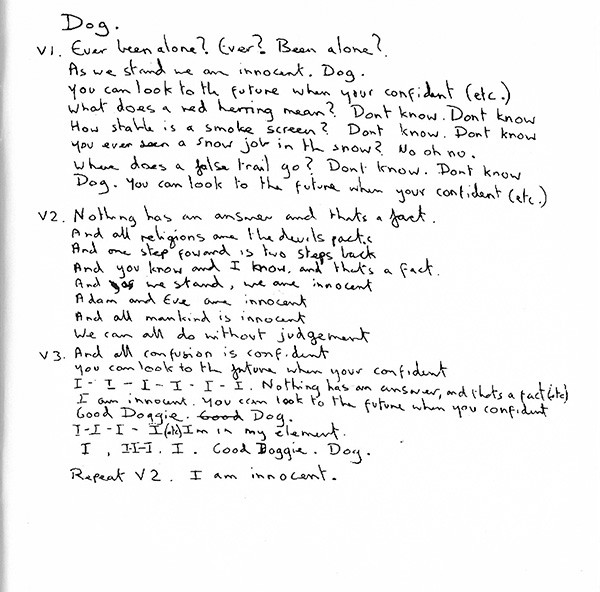 Dog.
V1. Ever been alone? Ever? Been alone?.
As we stand we are innocent. Dog.
You can look to the future when your confident (etc.)
What does a red herring mean? Dont know. Dont know
How stable is a smoke screen? Dont know. Dont know
You ever seen a snow job in the snow? No oh no.
Where does a false trail go? Dont know. Dont know
Dog. You can look to the future when your confident (etc.)
V2. Nothing has an answer and thats a fact.
And all religions are the devils pactic
And one step foward is two steps back
And you know and I know, and that's a fact.
And we stand, we are innocent
Adam and Eve are innocent
And all mankind is innocent
We can all do without judgement
V3. And all confusion is confident
You can look to the future when your confident
I- I - I - I - I - I. Nothing has an answer, and thats a fact (etc)
I am innocent. You can look to the future when you confident
Good Doggie. Good Dog.
I-I-I- I (etc) Im in my element.
I, I-I-I. I. Good Doggie. Dog.
Repeat V2. I am innocent.